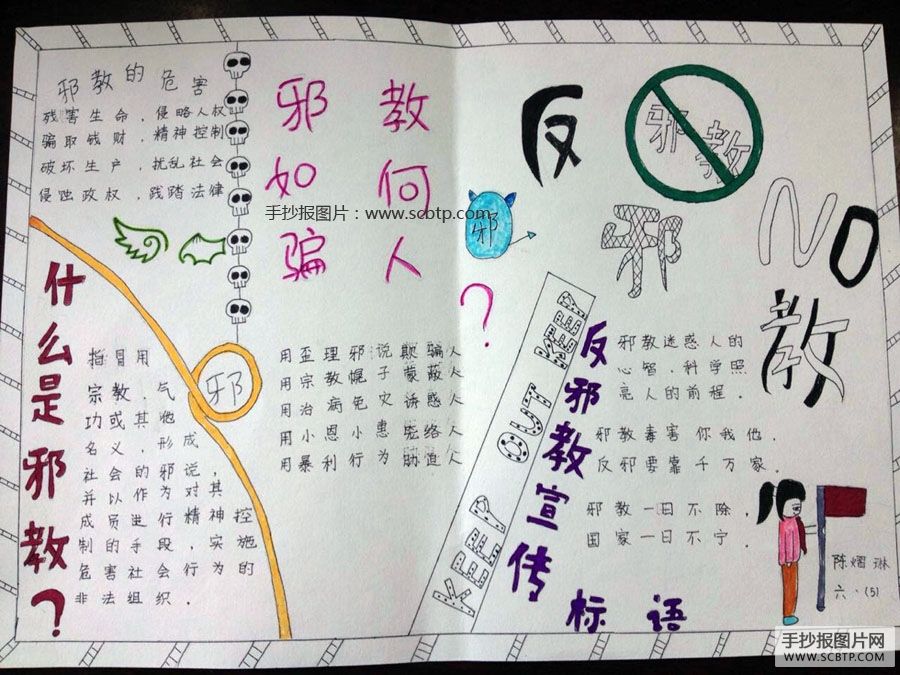 邪教的危害
残害生命，侵略人权
骗取钱财，精神控制
破坏生产，扰乱社会
侵蚀政权，践踏法律
什么是邪教？
指冒用
宗教、气
功或其他
名义，形成
社会的邪说，
并以作为对其
成员进行精神控
制的手段，实施
危害社会行为的
非法组织．
邪
邪教
如何
骗人
？
手抄报图片：www.scbtp.com
用歪理邪说欺骗人
用宗教幌子蒙蔽人
用治病免灾诱惑人
用小恩小惠笼络人
用暴利行为胁迫人
邪
反邪教
邪教
NO
KEEP OUR
反邪教宣传标语
邪教迷惑人的
心智，科学照
亮人的前程．
邪教毒害你我他，
反邪要靠千万家．
邪教一日不除，
国家一日不宁．
陈熠琳
六．(5)
手抄报图片网
WWW.SCBTP.COM